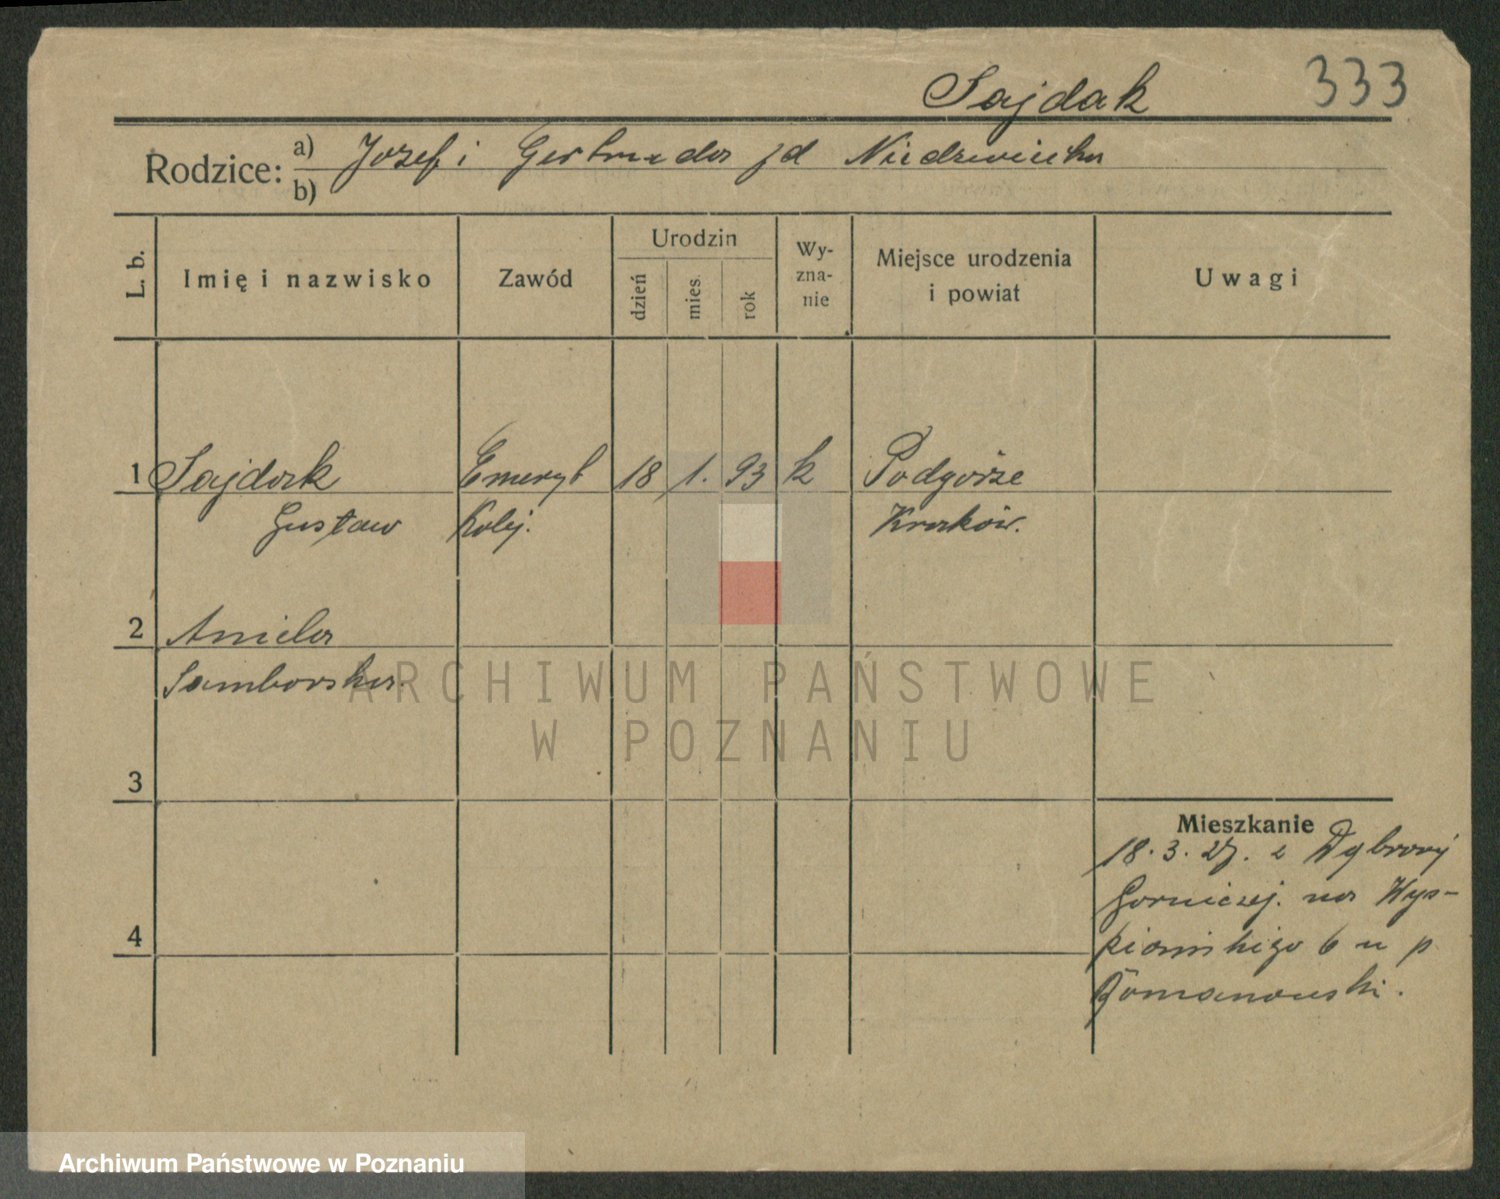 Sajdak 333
Rodzice: a) Jozef i Gertruda zd Niedzwiecka
b)
L. b. Imię i nazwisko Zawód Urodzin dzień mies. rok Wy-zna-nie Miejsce urodzenia i powiat Uwagi
1 Sajdak Emeryt 18 1. 93 k Podgórze
Gustaw Kolej. Kraków.
2 Aniela
Samborska.
3
Mieszkanie
18. 3. 27. z Dąbrowy
Gorniczej. na Wys-
4 piańskiego 6 u p
Romanowski.
ARCHIWUM PAŃSTWOWE
W POZNANIU
Archiwum Państwowe w Poznaniu